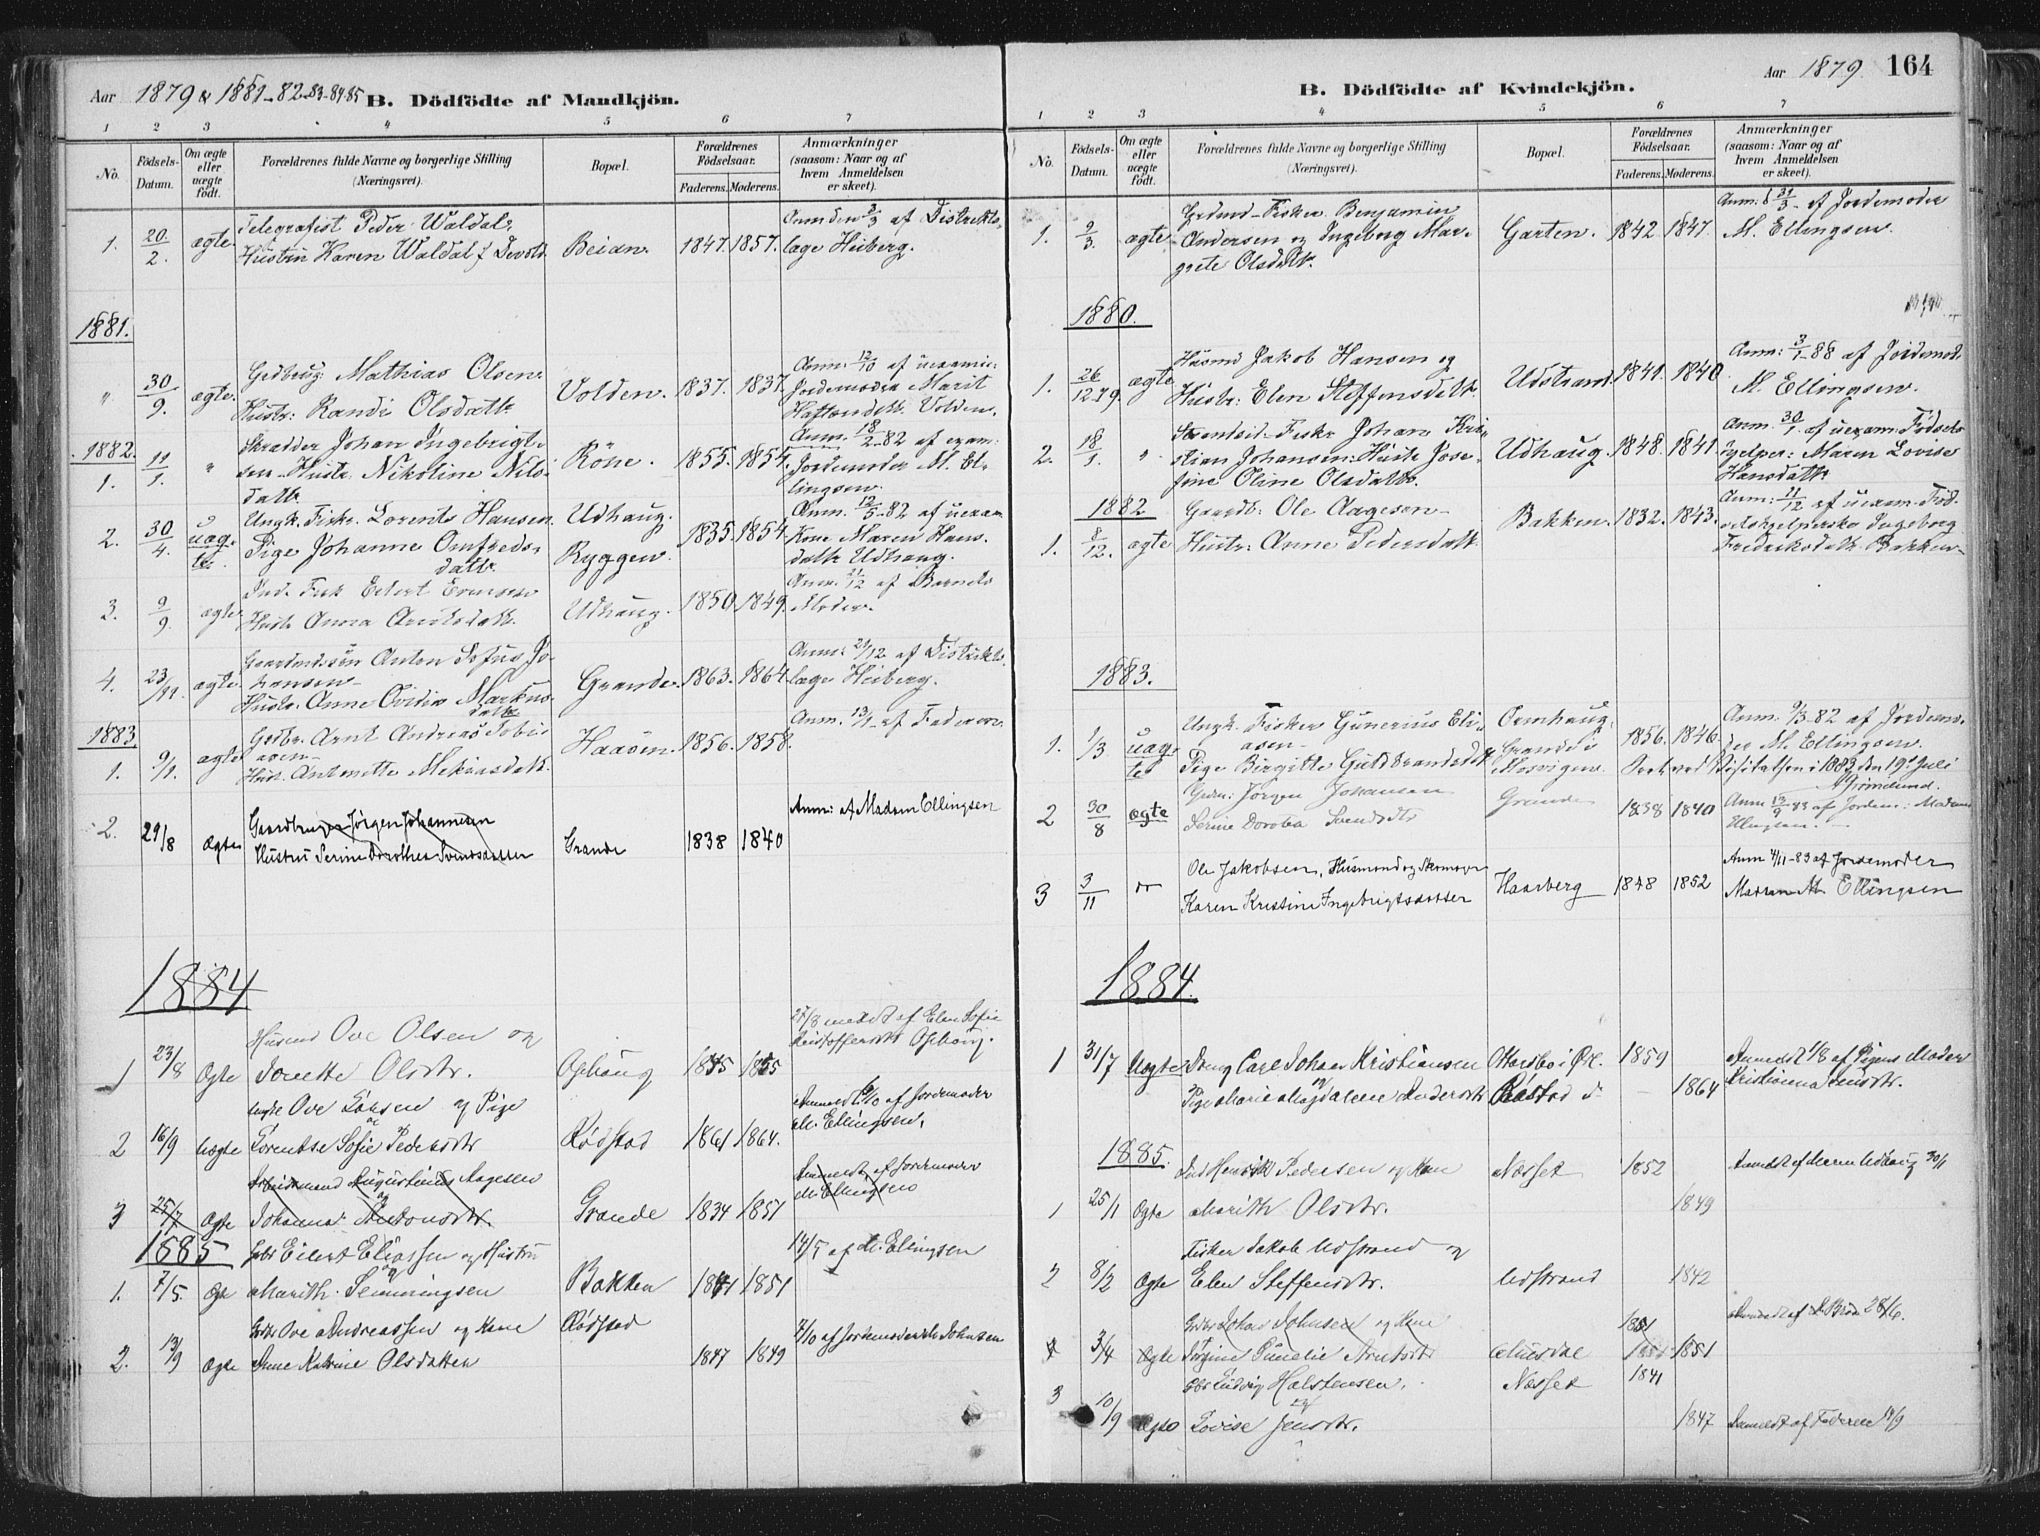 Aar 1879 & 1881-82-83-84-85 B. Dödfödte af Mandkjön.
1 2 3 4 5 6 7
No. Födsels-Datum. Om ægte eller uægte födt. Forældrenes fulde Navne og borgerlige Stilling (Næringsvei). Bopæl. Forældrenes Födselsaar. Faderens. Moderens. Anmærkninger (saasom: Naar og af hvem Anmeldelsen er skeet).
1. 20/2. ægte. Telegrafist Peder Waldal
Hustru Karen Waldal f. Devold. Beian. 1847. 1857. Anm den 3/3 af Distrikts-
læge Heiberg.
1881.
" 30/9. ægte. Gbrug. Mathias Olsen.
Hustr: Randi Olsdatt. Volden. 1837. 1837. Anm. 12/10 af uexamin:
Jordemoder Marit
Volden.
1882.
1. 11/1. " Skrædder Johan Ingebrigt-
sen Hustr. Nikoline Nils-
datt. Röne. 1855. 1854. Anm. 18/2-82 af exam:
Jordemoder M. El-
lingsen.
2. 30/4. uæg-
te. Ungk. Fisker Lorents Hansen
Pige Johanne
datt. Udhaug.
Ryggen. 1835. 1854. Anm. 12/5-82 af uexam.
Kone Maren Hans-
datt. Udhaug.
3. 9/9. ægte. Ind. Fisk Eilert
Hust. Anna Arntsdatt. Udhaug. 1850. 1849. Anm. 21/12 af Barnets
Moder.
4. 23/11. ægte. Gaardmdssön Anton Sofus Jo-
hansen
Hustr. Anne Markus-
datt. Grande. 1863. 1864. Anm: 29/12 af Distrikts-
læge Heiberg.
1883.
1. 9/1. ægte Gbr. Arnt Andreas Tobi-
asen
Hust. Antonette Mekiasdatt. Haasen. 1856. 1858. Anm. 13/1 af Faderen.
2. 29/8 Ægte Gaardbruger Jörgen Johannesen
Hustru Serine Dorothea Svendsdatter Grande 1838 1840 Anm: af Madam Ellingsen
1884
1 23/8 Ægte Husmd Ove Olsen og
Jonette Olsdtr. Ophaug 1845 1855 25/8 meldt af Elen Sofie
Kristoffersdt Ophaug.
2 16/9 Uægte Ungk Ove Johsen og Pige
Lorentse Sofie Pedersdtr Rödstad 1861 1864. Anmeldt 6/10 af Jordemoder
M. Ellingsen.
3 25/7 Ægte Arbeidsmand Augustinus Aagesen
og
Johanna Antonsdtr. Grande 1834 1851 Anmeldt af Jordemoder
M Ellingsen
1885
1. 7/5. Ægte Gbr Eilert Eliassen og Hustru
Marith Henningsen Bakken 1841 1851 14/5 af M. Elingsen
2. 13/9 Ægte Gbr Ove Andreassen og Kone
Anne Katrine Olsdatter Rödstad 1847 1849 4/10 af Jordemoder Johnsen
B. Dödfödte af Kvindekjön. Aar 1879. 164
1 2 3 4 5 6 7
No. Födsels-Datum. Om ægte eller uægte födt. Forældrenes fulde Navne og borgerlige Stilling (Næringsvei). Bopæl. Forældrenes Födselsaar. Faderens. Moderens. Anmærkninger (saasom: Naar og af hvem Anmeldelsen er skeet).
1. 9/3. ægte Grdmd-Fisker Benjamin
Andersen og Ingeborg Mar-
grete Olsdatt. Garten. 1842. 1847. Anm: d 31/3 af Jordemoder
M. Ellingsen.
1880.
1. 26/12.79. ægte Husmd Jakob Hansen og
Hustr: Elen Steffensdatt. Udstrand. 1841. 1840. Anm: 3/1-88 af Jordemod.
M. Ellingsen.
2. 18/1. " Strandsid. Fisker Johan Kri-
stian Johansen: Hustr Jose-
fine Oline Olsdatt. Udhaug. 1848. 1841. Anm. 30/1. af uexam: Födsels-
hjelper: Maren Lovise
Hansdatt
1882
1. 8/12. ægte Gaardb: Ole Aagesen
Hustr: Anne Pedersdatt. Bakken. 1832. 1843. Anm: 11/12 af uexam. Föd-
selshjelperske Ingeborg
Frederiksdatt. Bakken
1883.
1. 1/3. uæg-
te Ungk. Fisker Gunerius Eli-
asen
Pige Birgitte Guldbrandsdtt Ormhaug.
Grande i
Mosvigen. 1856. 1846. Anm. 9/3-82 af Jordemo-
der M. Ellingsen.
Seet ved Visitatsen i 1883 den 19' Juli
2 30/8 ægte Grdm: Jörgen Johansen
Serine Dorotea Svendsdtr Grande 1838 1840 Anm 12/9 83 af Jordem: Madam
Ellingsen.
3 3/11 " Ole Jakobsen, Husmand og Skomager
Karen Kristine Ingebrigtsdatter Haarberg 1848 1852 Anm 4/11-83 af Jordemoder
Madam M. Ellingsen
1884.
1 31/7 Uægte Dreng Carl Johan Kristiansen
og
Pige Maria Magdalene Andersdt Röstad 1859
1864 Anmeldt 1/8 af Pigens Moder
Kristianna Jensdtr.
1885.
1 25/1 Ægte Ind Henrik Pedersen og Kone
Marith Olsdtr. Næsset 1852
1849 Anmeldt af Maren Udhaug 30/1
2 8/2 Ægte Fisker Jakob Udstrand og
Elen Steffensdtr. Udstrand 1842
3/4 Ægte Gbr Johan Johnsen og Kone
Jörgine Arntsdtr 1851
1851 Anmeldt af 28/6.
3 10/9 Ægte Gbr Ludvig Halstensen.
og
Lovise Jensdtr. Næsset 1841
1847 Anmeldt af Faderen 19/9